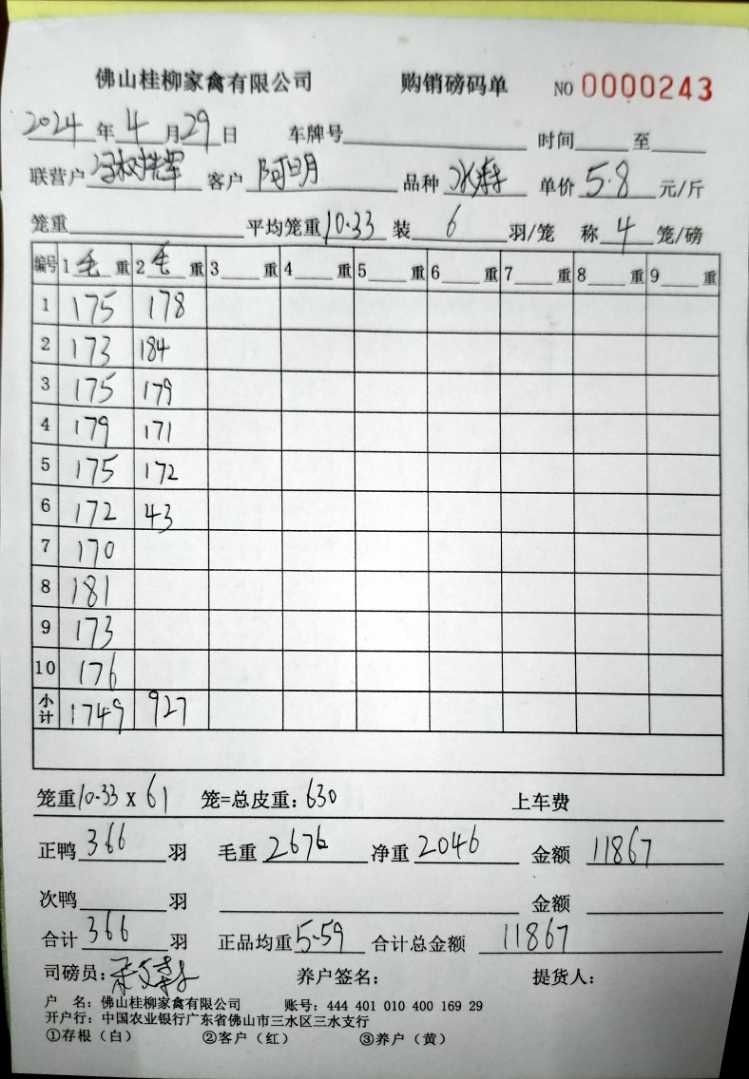 佛山桂柳家禽有限公司 购销磅码单 NO 0000243
2024年4月29日 车牌号 时间 至
联营户 客户 阿明 品种 单价 5.8 元/斤
笼重 平均笼重 10.33 装 6 羽/笼 称 4 笼/磅
编号 1 毛 重 2 毛 重 3 重 4 重 5 重 6 重 7 重 8 重 9 重
1 175 178
2 173 184
3 175 179
4 179 171
5 175 172
6 172 43
7 170
8 181
9 173
10 176
小计 1749 927
笼重10.33 x 61 笼=总皮重：630 上车费
正鸭 366 羽 毛重 2676 净重 2046 金额 11867
次鸭 羽 金额
合计 366 羽 正品均重 5.59 合计总金额 11867
司磅员： 养户签名： 提货人：
户 名：佛山桂柳家禽有限公司 账号：444 401 010 400 169 29
开户行：中国农业银行广东省佛山市三水区三水支行
①存根（白） ②客户（红） ③养户（黄）